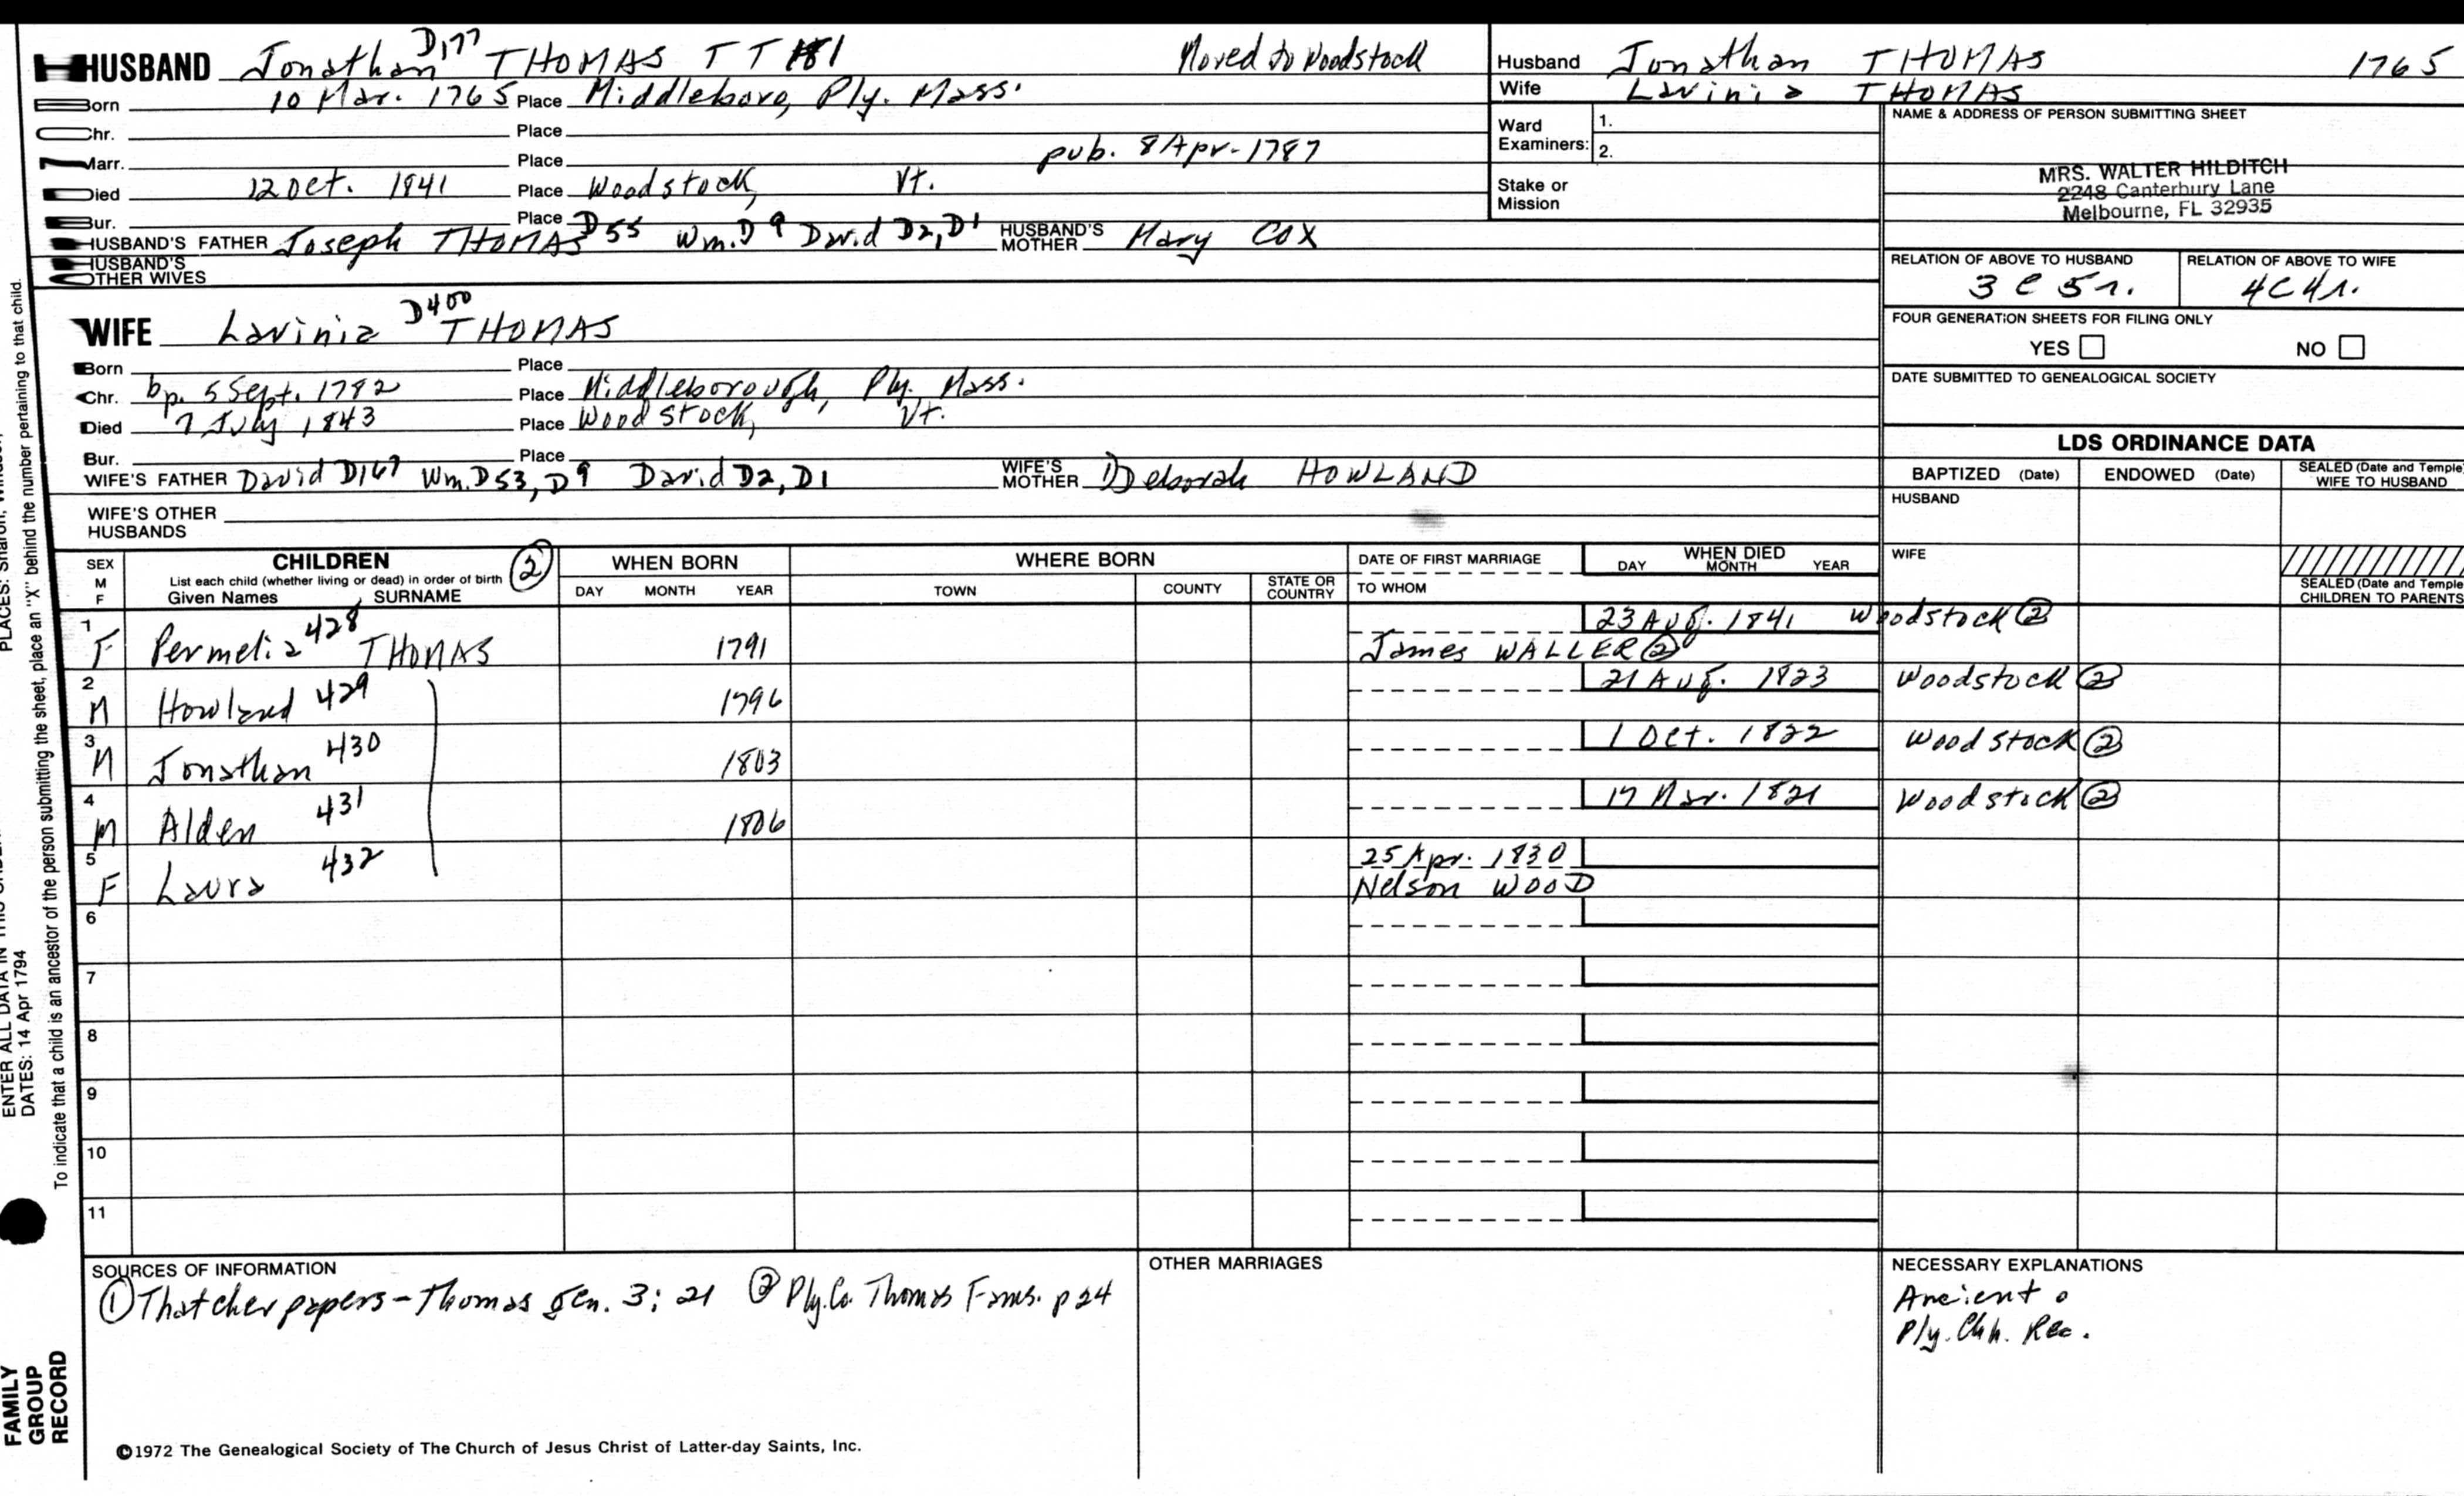 HUSBAND Jonathan D177 THOMAS TT 181 Moved to Woodstock
Born 10 Mar. 1765 Place Middleboro, Ply. Mass.
Chr. Place
Marr. Place pub. 8 Apr-1787
Died 12 Oct. 1841 Place Woodstock, Vt.
Bur. Place
HUSBAND'S FATHER Joseph THOMAS D55 Wm. D9 David D2, D1 HUSBAND'S MOTHER Mary COX
HUSBAND'S OTHER WIVES
WIFE Lavinia D400 THOMAS
Born Place
Chr. bp. 5 Sept. 1782 Place Middleborough, Ply. Mass.
Died 7 July 1843 Place Woodstock, Vt.
Bur. Place
WIFE'S FATHER David D167 Wm. D53, D9 David D2, D1 WIFE'S MOTHER Deborah HOWLAND
WIFE'S OTHER HUSBANDS
Husband Jonathan THOMAS 1765
Wife Lavinia THOMAS
Ward Examiners: 1.
2.
Stake or Mission
NAME & ADDRESS OF PERSON SUBMITTING SHEET
MRS. WALTER HILDITCH
2248 Canterbury Lane
Melbourne, FL 32935
RELATION OF ABOVE TO HUSBAND RELATION OF ABOVE TO WIFE
3 C 5 r. 4C4r.
FOUR GENERATION SHEETS FOR FILING ONLY
YES NO
DATE SUBMITTED TO GENEALOGICAL SOCIETY
LDS ORDINANCE DATA
BAPTIZED (Date) ENDOWED (Date) SEALED (Date and Temple) WIFE TO HUSBAND
HUSBAND
WIFE
SEALED (Date and Temple) CHILDREN TO PARENTS
SEX M F CHILDREN ② WHEN BORN WHERE BORN DATE OF FIRST MARRIAGE WHEN DIED
List each child (whether living or dead) in order of birth
Given Names SURNAME DAY MONTH YEAR TOWN COUNTY STATE OR COUNTRY TO WHOM DAY MONTH YEAR
1 23 Aug. 1841 Woodstock ②
F Permelia 428 THOMAS 1791 James WALLER ②
2 21 Aug. 1823 Woodstock ②
M Howland 429 1796
3 1 Oct. 1822 Woodstock ②
M Jonathan 430 1803
4 17 Mar. 1821 Woodstock ②
M Alden 431 1806
5 25 Apr. 1830
F Laura 432 Nelson WOOD
6
7
8
9
10
11
SOURCES OF INFORMATION
① Thatcher papers - Thomas gen. 3; 21 ② Ply. Co. Thomas Fams. p 24
OTHER MARRIAGES
NECESSARY EXPLANATIONS
Ancient
Ply. Chh. Rec.
©1972 The Genealogical Society of The Church of Jesus Christ of Latter-day Saints, Inc.
FAMILY
GROUP
RECORD
ENTER ALL DATA IN THIS
DATES: 14 Apr 1794
PLACES: Sharon,
To indicate that a child is an ancestor of the person submitting the sheet, place an "X" behind the number pertaining to that child.